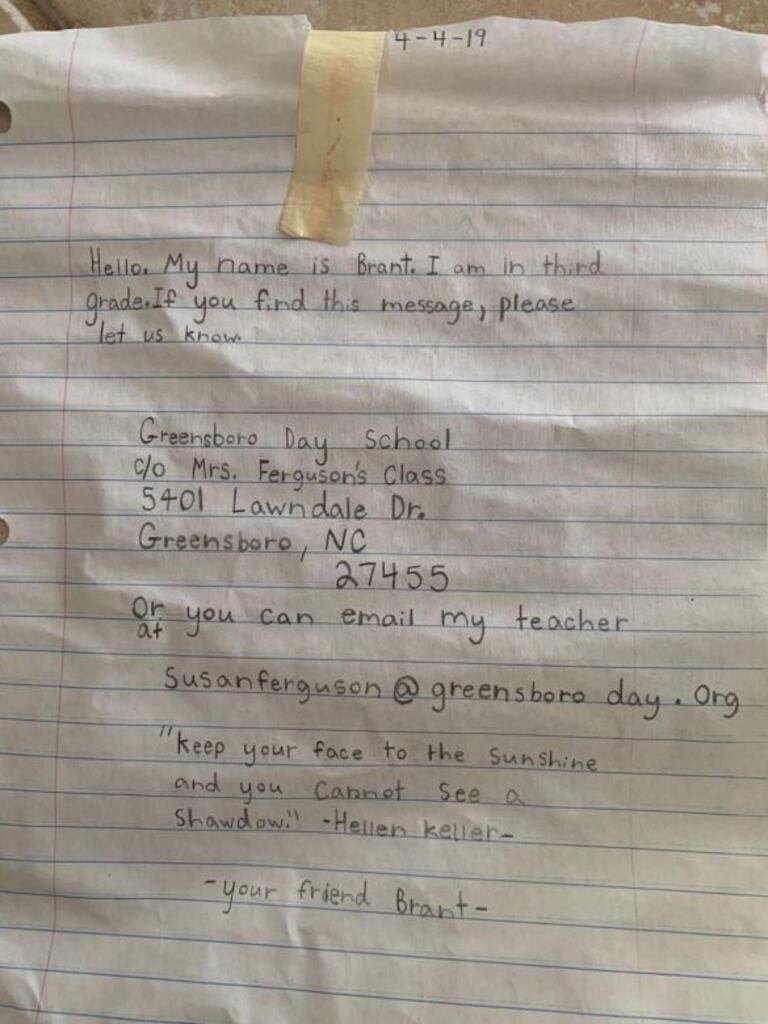 4-4-19
Hello. My name is Brant. I am in third
grade. If you find this message, please
let us know.
Greensboro Day School
c/o Mrs. Ferguson's Class
5401 Lawndale Dr.
Greensboro, NC
27455
Or you can email my teacher
at
Susanferguson@greensboro day.Org
"keep your face to the Sunshine
and you Cannot See a
Shawdow." -Hellen Keller-
-your friend Brant-